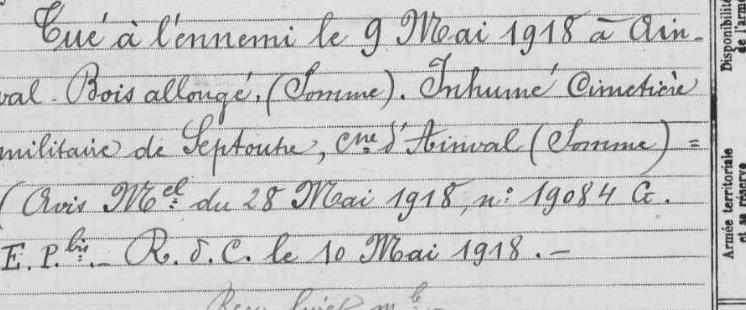 Tué à l'ennemi le 9 Mai 1918 à Ain-
val - Bois allongé, (Somme). Inhumé Cimetière
militaire de Septoutre, Cne d'Ainval (Somme) =
(Avis Mel du 28 Mai 1918, n: 19084 G.
E. P. bis. - R. d. C. le 10 Mai 1918. -
Disponibilité
de l'armé
Armée territoriale
et sa réserve